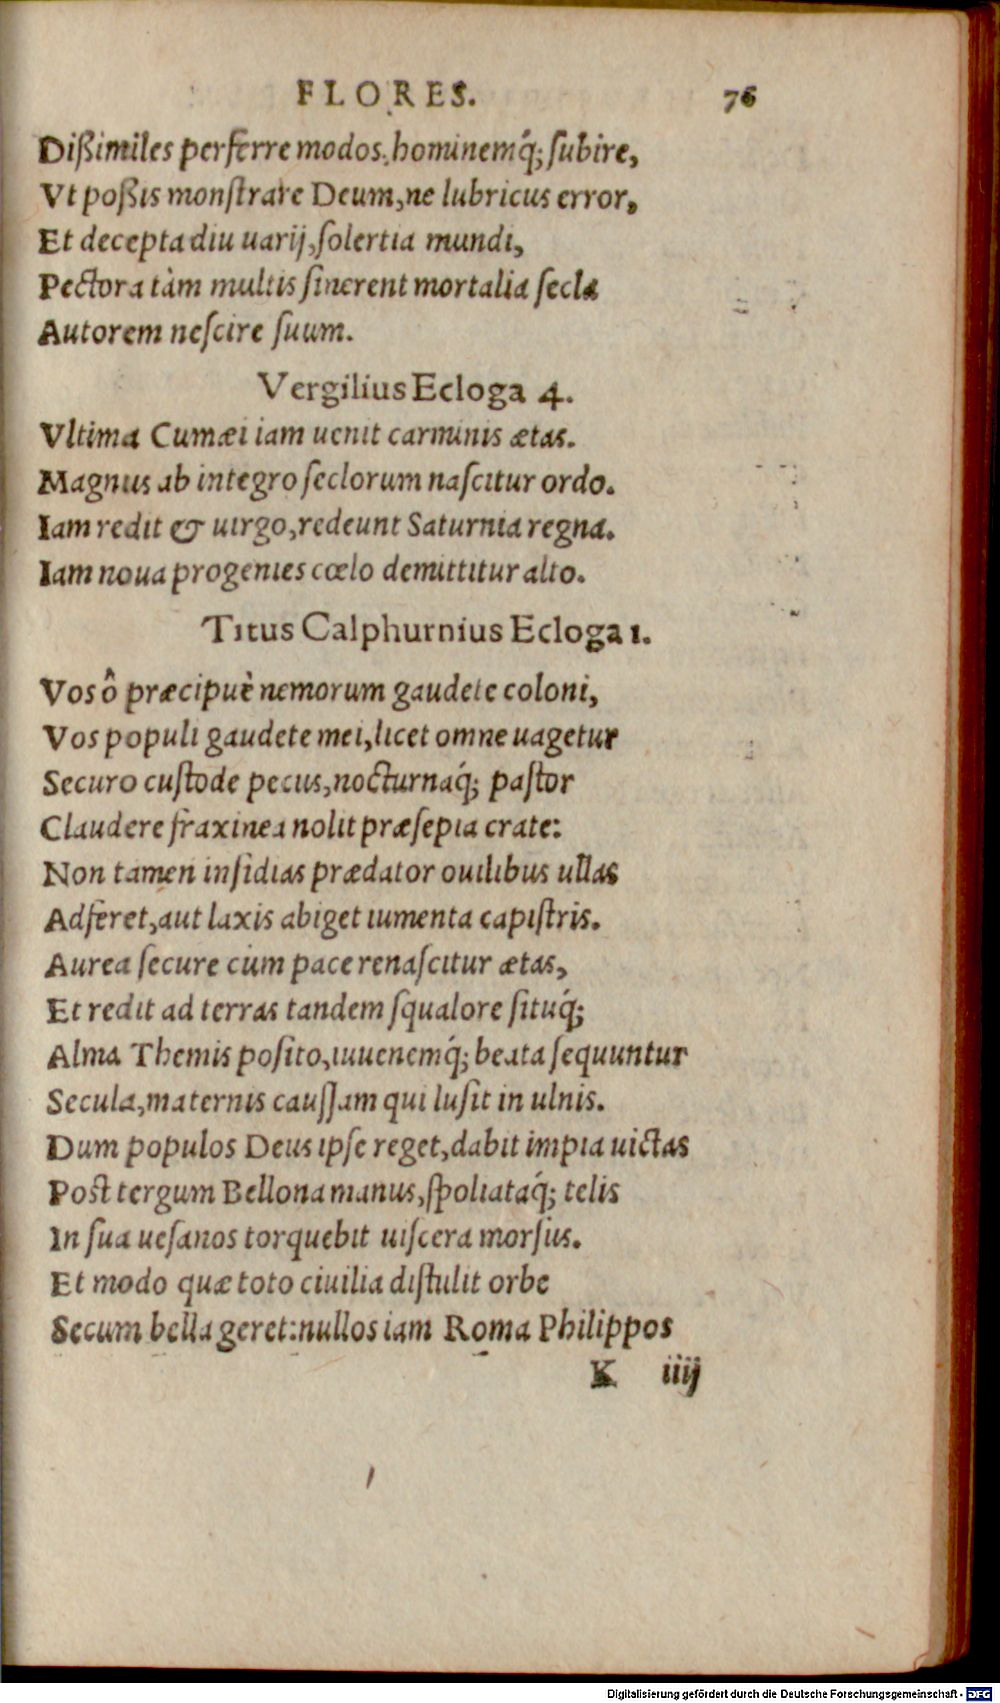 FLORES. 76
Dißimiles perferre modos, hominemq́; ſubire,
Vt poßis monſtrare Deum, ne lubricus error,
Et decepta diu uarij, ſolertia mundi,
Pectora tàm multis ſinerent mortalia ſecla
Autorem neſcire ſuum.
Vergilius Ecloga 4.
Vltima Cumæi iam uenit carminis ætas.
Magnus ab integro ſeclorum naſcitur ordo.
Iam redit & uirgo, redeunt Saturnia regna.
Iam noua progenies cœlo demittitur alto.
Titus Calphurnius Ecloga 1.
Vos ô præcipuè nemorum gaudete coloni,
Vos populi gaudete mei, licet omne uagetur
Securo cuſtode pecus, nocturnaq́; paſtor
Claudere fraxinea nolit præſepia crate:
Non tamen inſidias prædator ouilibus ullas
Adferet, aut laxis abiget iumenta capiſtris.
Aurea ſecure cum pace renaſcitur ætas,
Et redit ad terras tandem ſqualore ſituq́;
Alma Themis poſito, iuuenemq́; beata ſequuntur
Secula, maternis cauſſam qui luſit in ulnis.
Dum populos Deus ipſe reget, dabit impia uictas
Poſt tergum Bellona manus, ſpoliataq́; telis
In ſua ueſanos torquebit uiſcera morſus.
Et modo quæ toto ciuilia diſtulit orbe
Secum bella geret: nullos iam Roma Philippos
K iiij
Digitalisierung gefördert durch die Deutsche Forschungsgemeinschaft - DFG